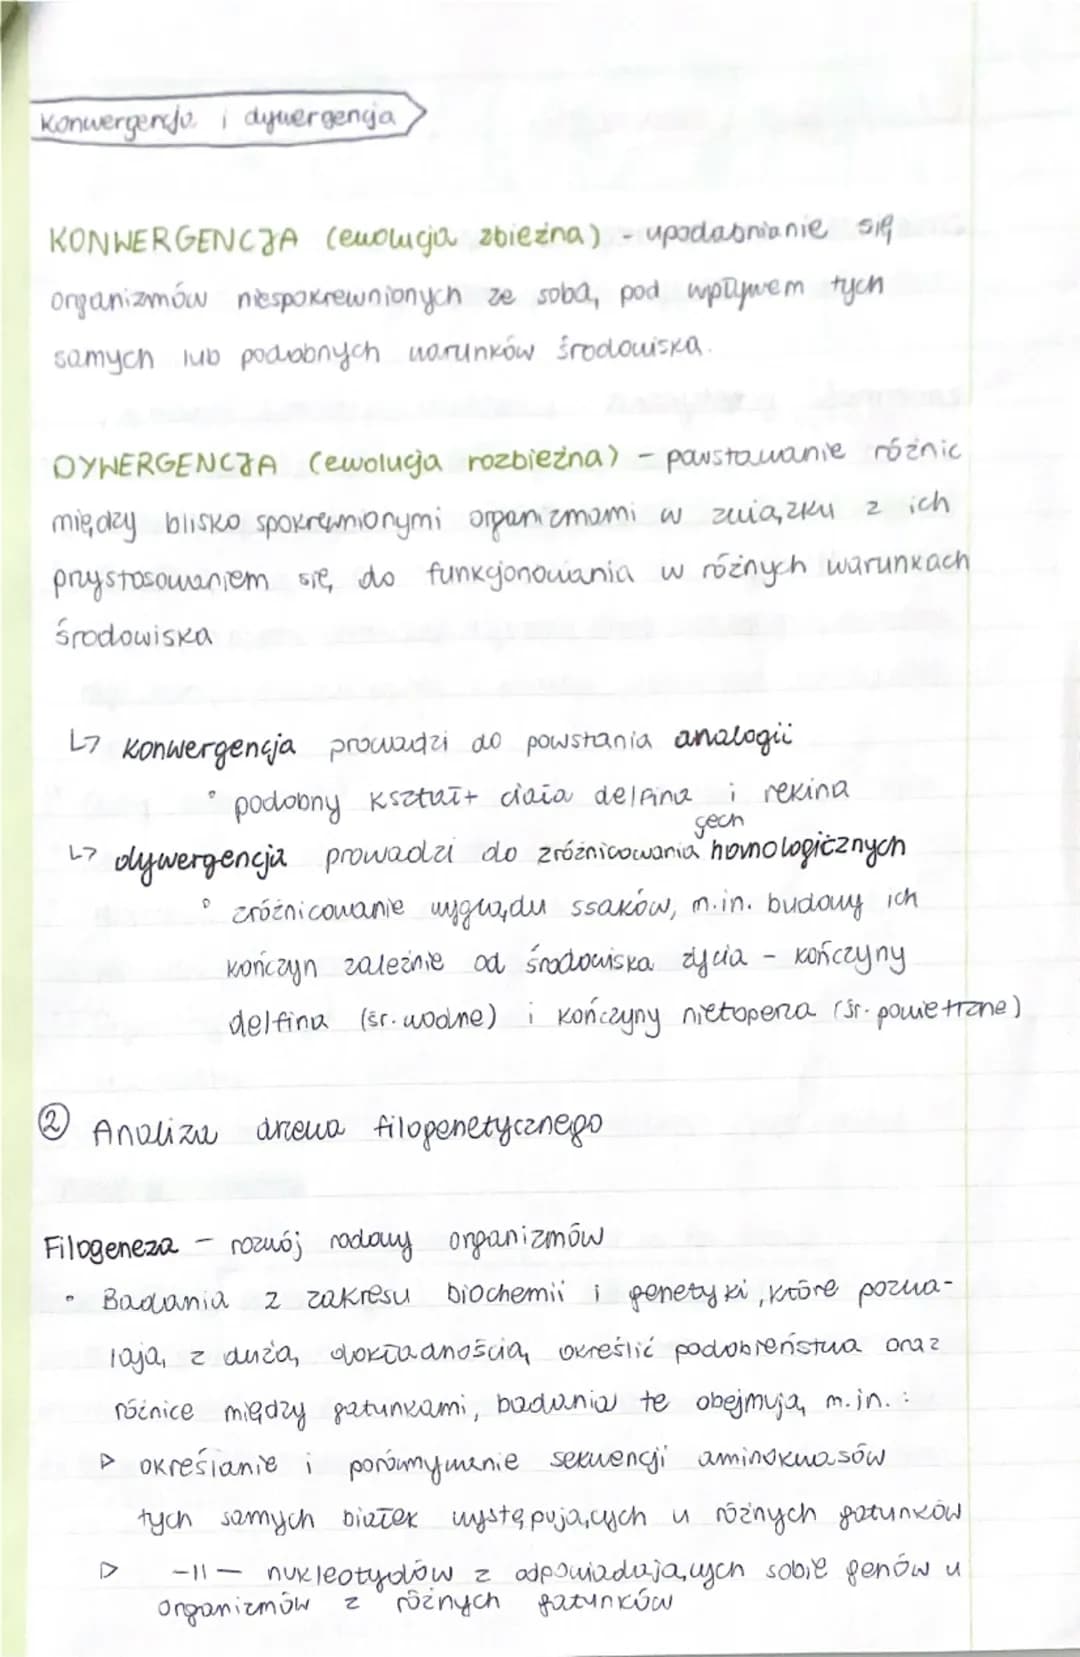 Konwergencja i dywergencja
KONWERGENCJA (ewolucja zbieżna) - upodabnianie się
organizmów niespokrewnionych ze sobą, pod wpływem tych
samych lub podobnych warunków środowiska.
DYWERGENCJA (ewolucja rozbieżna) - powstawanie różnic
między blisko spokrewnionymi organizmami w związku z ich
przystosowaniem się do funkcjonowania w różnych warunkach
środowiska
↳ konwergencja prowadzi do powstania analogii
° podobny kształt ciała delfina i rekina
cech
↳ dywergencja prowadzi do zróżnicowania homologicznych
° zróżnicowanie wyglądu ssaków, m.in. budowy ich
kończyn zależnie od środowiska życia - kończyny
delfina (śr. wodne) i kończyny nietoperza (śr. powietrzne)
② Analiza drzewa filogenetycznego
Filogeneza - rozwój rodowy organizmów
• Badania z zakresu biochemii i genetyki, które pozwa-
lają z dużą dokładnością określić podobieństwa oraz
różnice między gatunkami, badania te obejmują m.in. :
▷ określanie i porównywanie sekwencji aminokwasów
tych samych białek występujących u różnych gatunków
▷ -||- nukleotydów z odpowiadających sobie genów u
organizmów z różnych gatunków